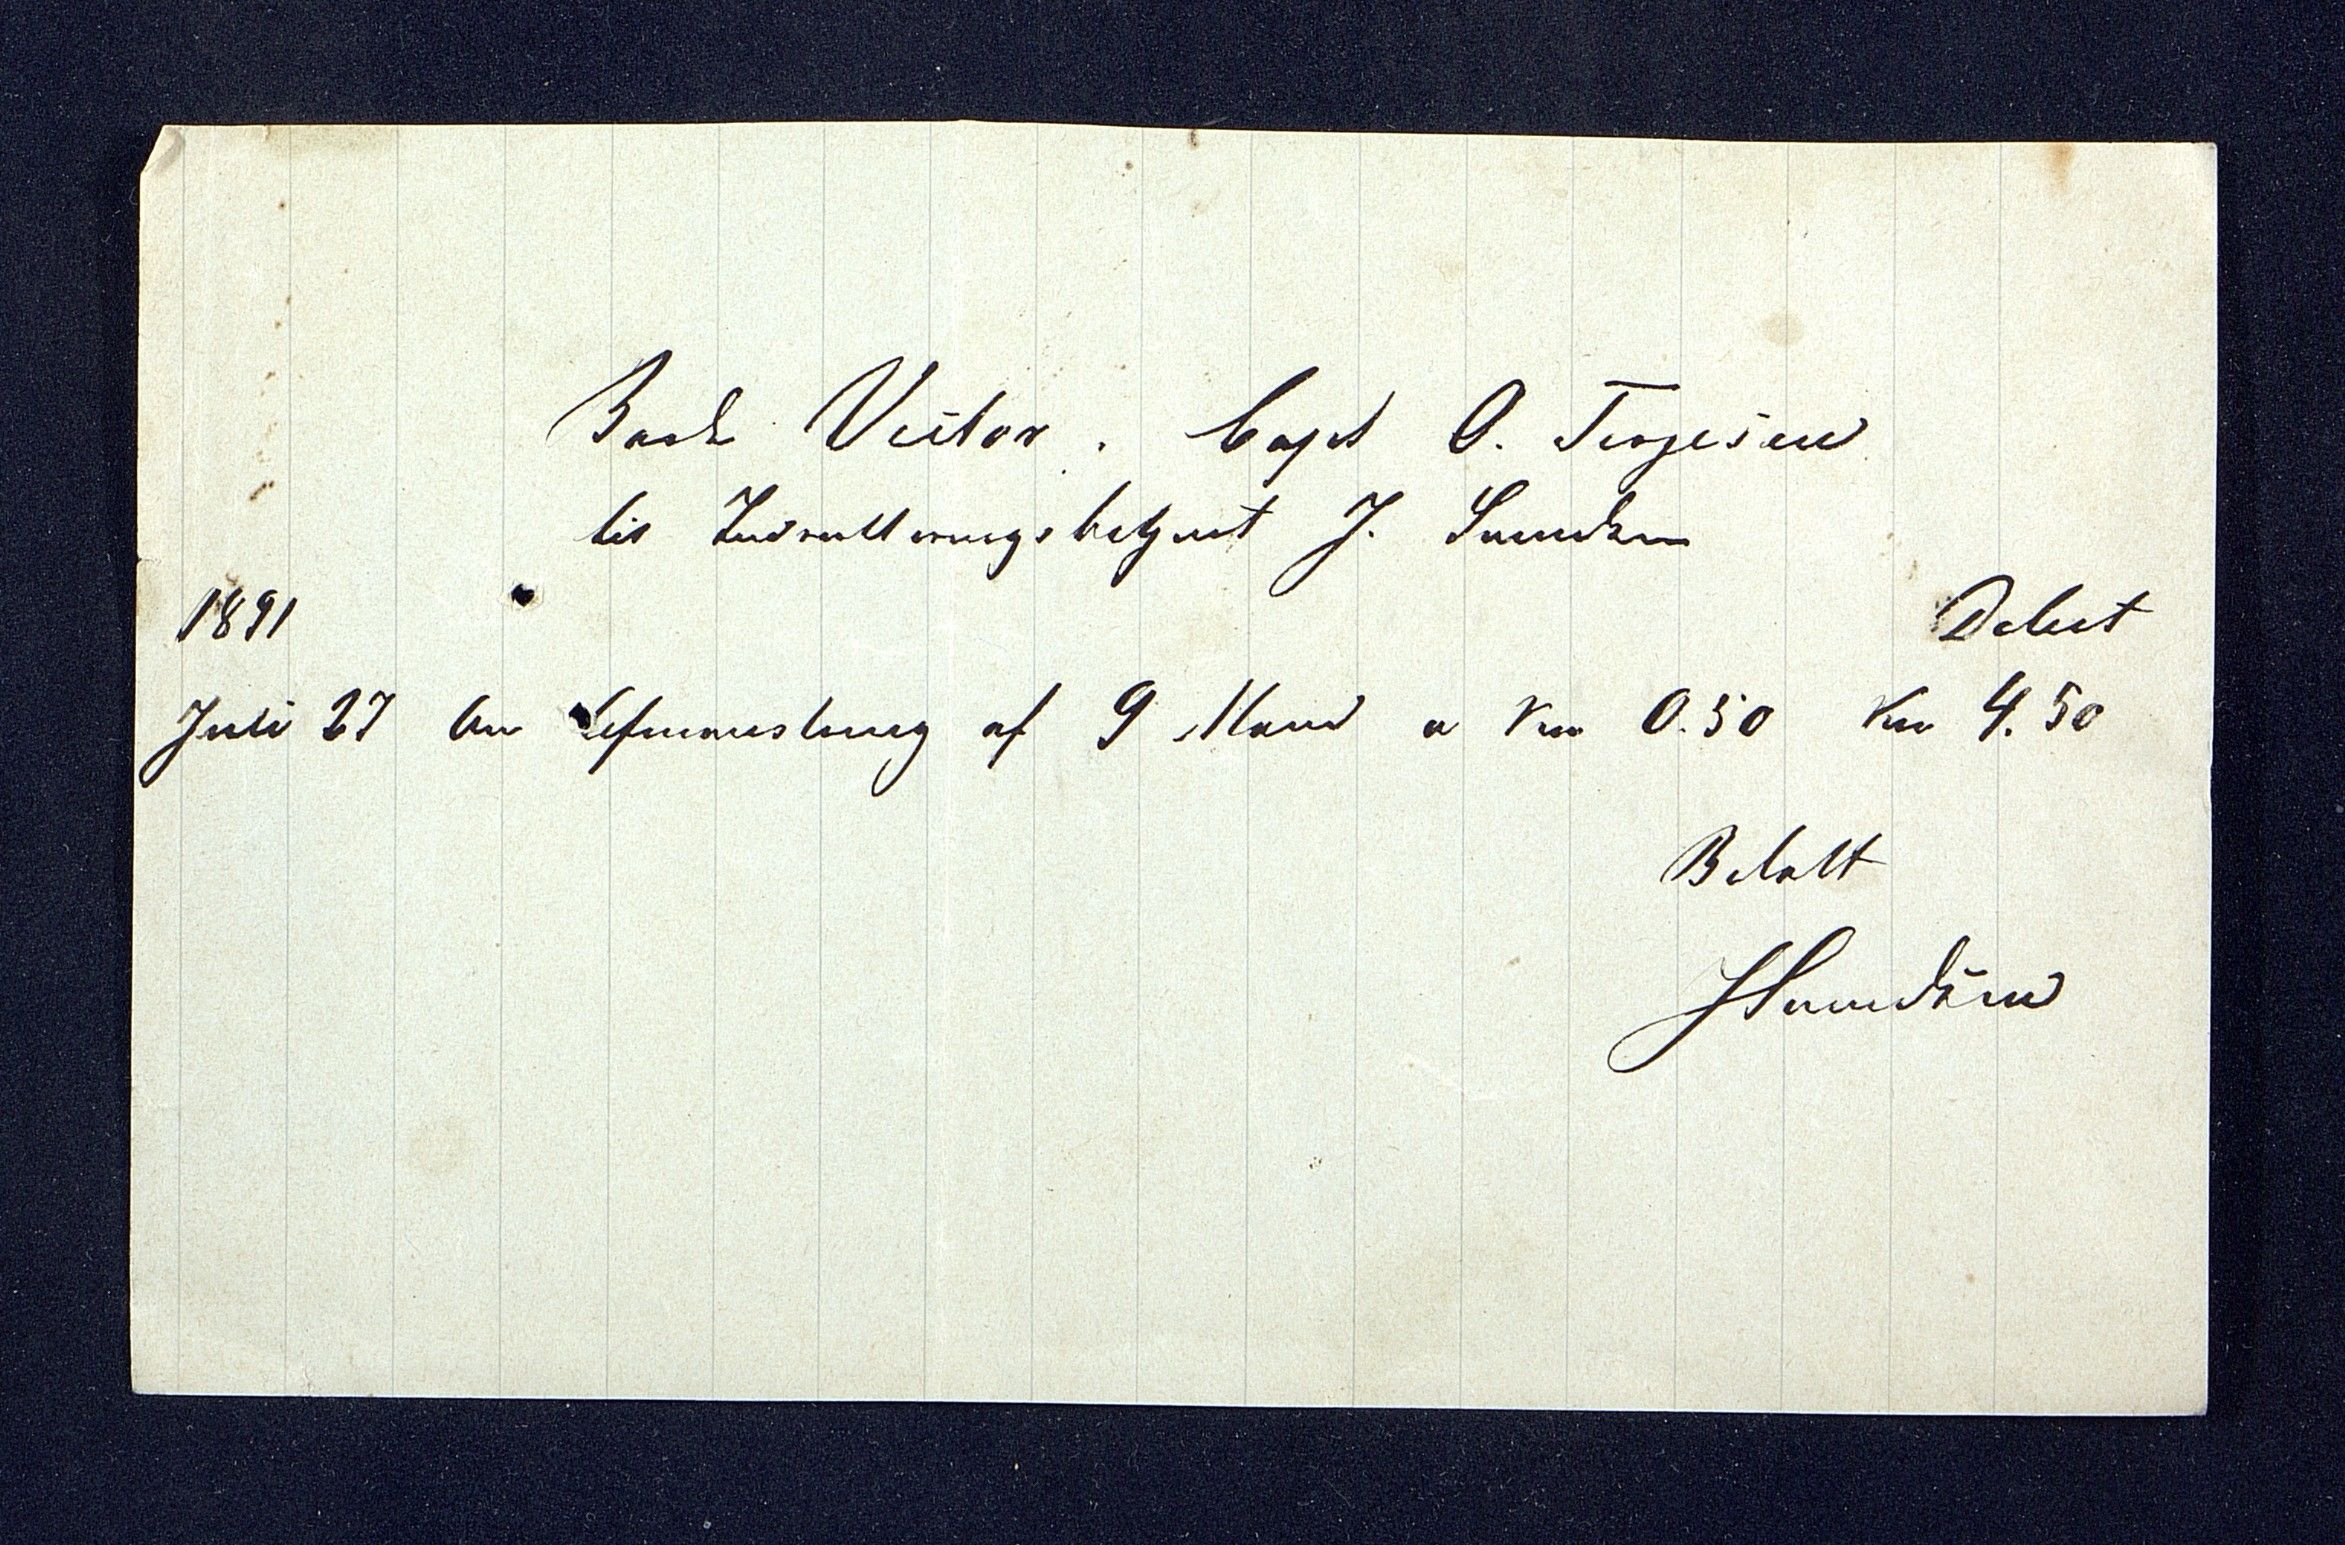 Bark Victor. Capt O. Terjesen
til Indrulleringsbetjent J. Sundøen
1891 Debet
Juli 27 An Afmønstring af 9 Mand a Kr 0.50 Kr 4.50
Betalt
JSundøen